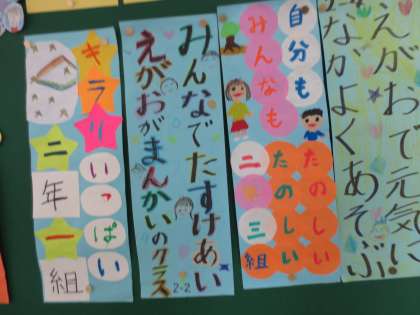 キラリいっぱい
二年一組
みんなでたすけあい
えがおがまんかいのクラス
2-2
自分もたのしい
みんなもたのしい
二三組
えがおで元気に
なかよくあそぶ